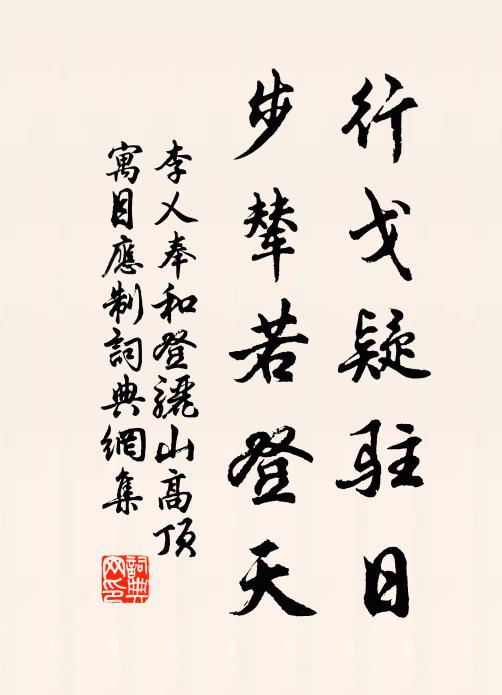 行戈疑駐日
步輦若登天
李乂奉和登驪山高頂
寓目應制詞典網集
詞典
网印